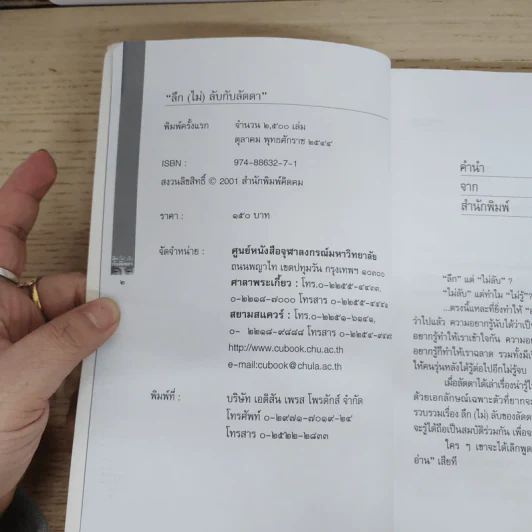 "ลึก (ไม่) ลับกับลัดดา"
พิมพ์ครั้งแรก จำนวน ๒,๕๐๐ เล่ม
ตุลาคม พุทธศักราช ๒๕๔๔
ISBN : 974-88632-7-1
สงวนลิขสิทธิ์ © 2001 สำนักพิมพ์คิดคม
ราคา : ๑๕๐ บาท
จัดจำหน่าย : ศูนย์หนังสือจุฬาลงกรณ์มหาวิทยาลัย
ถนนพญาไท เขตปทุมวัน กรุงเทพฯ ๑๐๓๐๐
ศาลาพระเกี้ยว : โทร.๐-๒๒๕๕-๔๔๓๓,
๐-๒๒๑๘-๗๐๐๐ โทรสาร ๐-๒๒๕๕-๔๔๔๑
สยามสแควร์ : โทร.๐-๒๒๕๑-๖๑๔๑,
๐- ๒๒๑๘-๙๘๘๘ โทรสาร
http://www.cubook.chu.ac.th
e-mail:cubook@chula.ac.th
พิมพ์ที่ : บริษัท เอดิสัน เพรส โพรดักส์ จำกัด
โทรศัพท์ ๐-๒๙๗๑-๗๐๑๙-๒๔
โทรสาร ๐-๒๕๒๒-๒๘๓๓
๒
คำนำ
จาก
สำนักพิมพ์
"ลึก" แต่ "ไม่ลับ" ?
"ไม่ลับ" แต่ทำไม "ไม่รู้"?
...ตรงนี้แหละที่ยิ่งทำให้
ว่าไปแล้ว ความอยากรู้นับได้ว่าเป็น
อยากรู้ทำให้เราเข้าใจกัน ความ
อยากรู้ก็ทำให้เราฉลาด รวมทั้งมี
ให้คนรุ่นหลังได้รู้ต่อไปอีกไม่รู้จบ
เมื่อลัดดาได้เล่าเรื่องน่ารู้
ด้วยเอกลักษณ์เฉพาะตัวที่ยากจะ
รวบรวมเรื่อง ลึก (ไม่) ลับของลัดดา
จะรู้ได้ถือเป็นสมบัติร่วมกัน เพื่อ
ใคร ๆ เขาจะได้เลิกพูด
อ่าน" เสียที